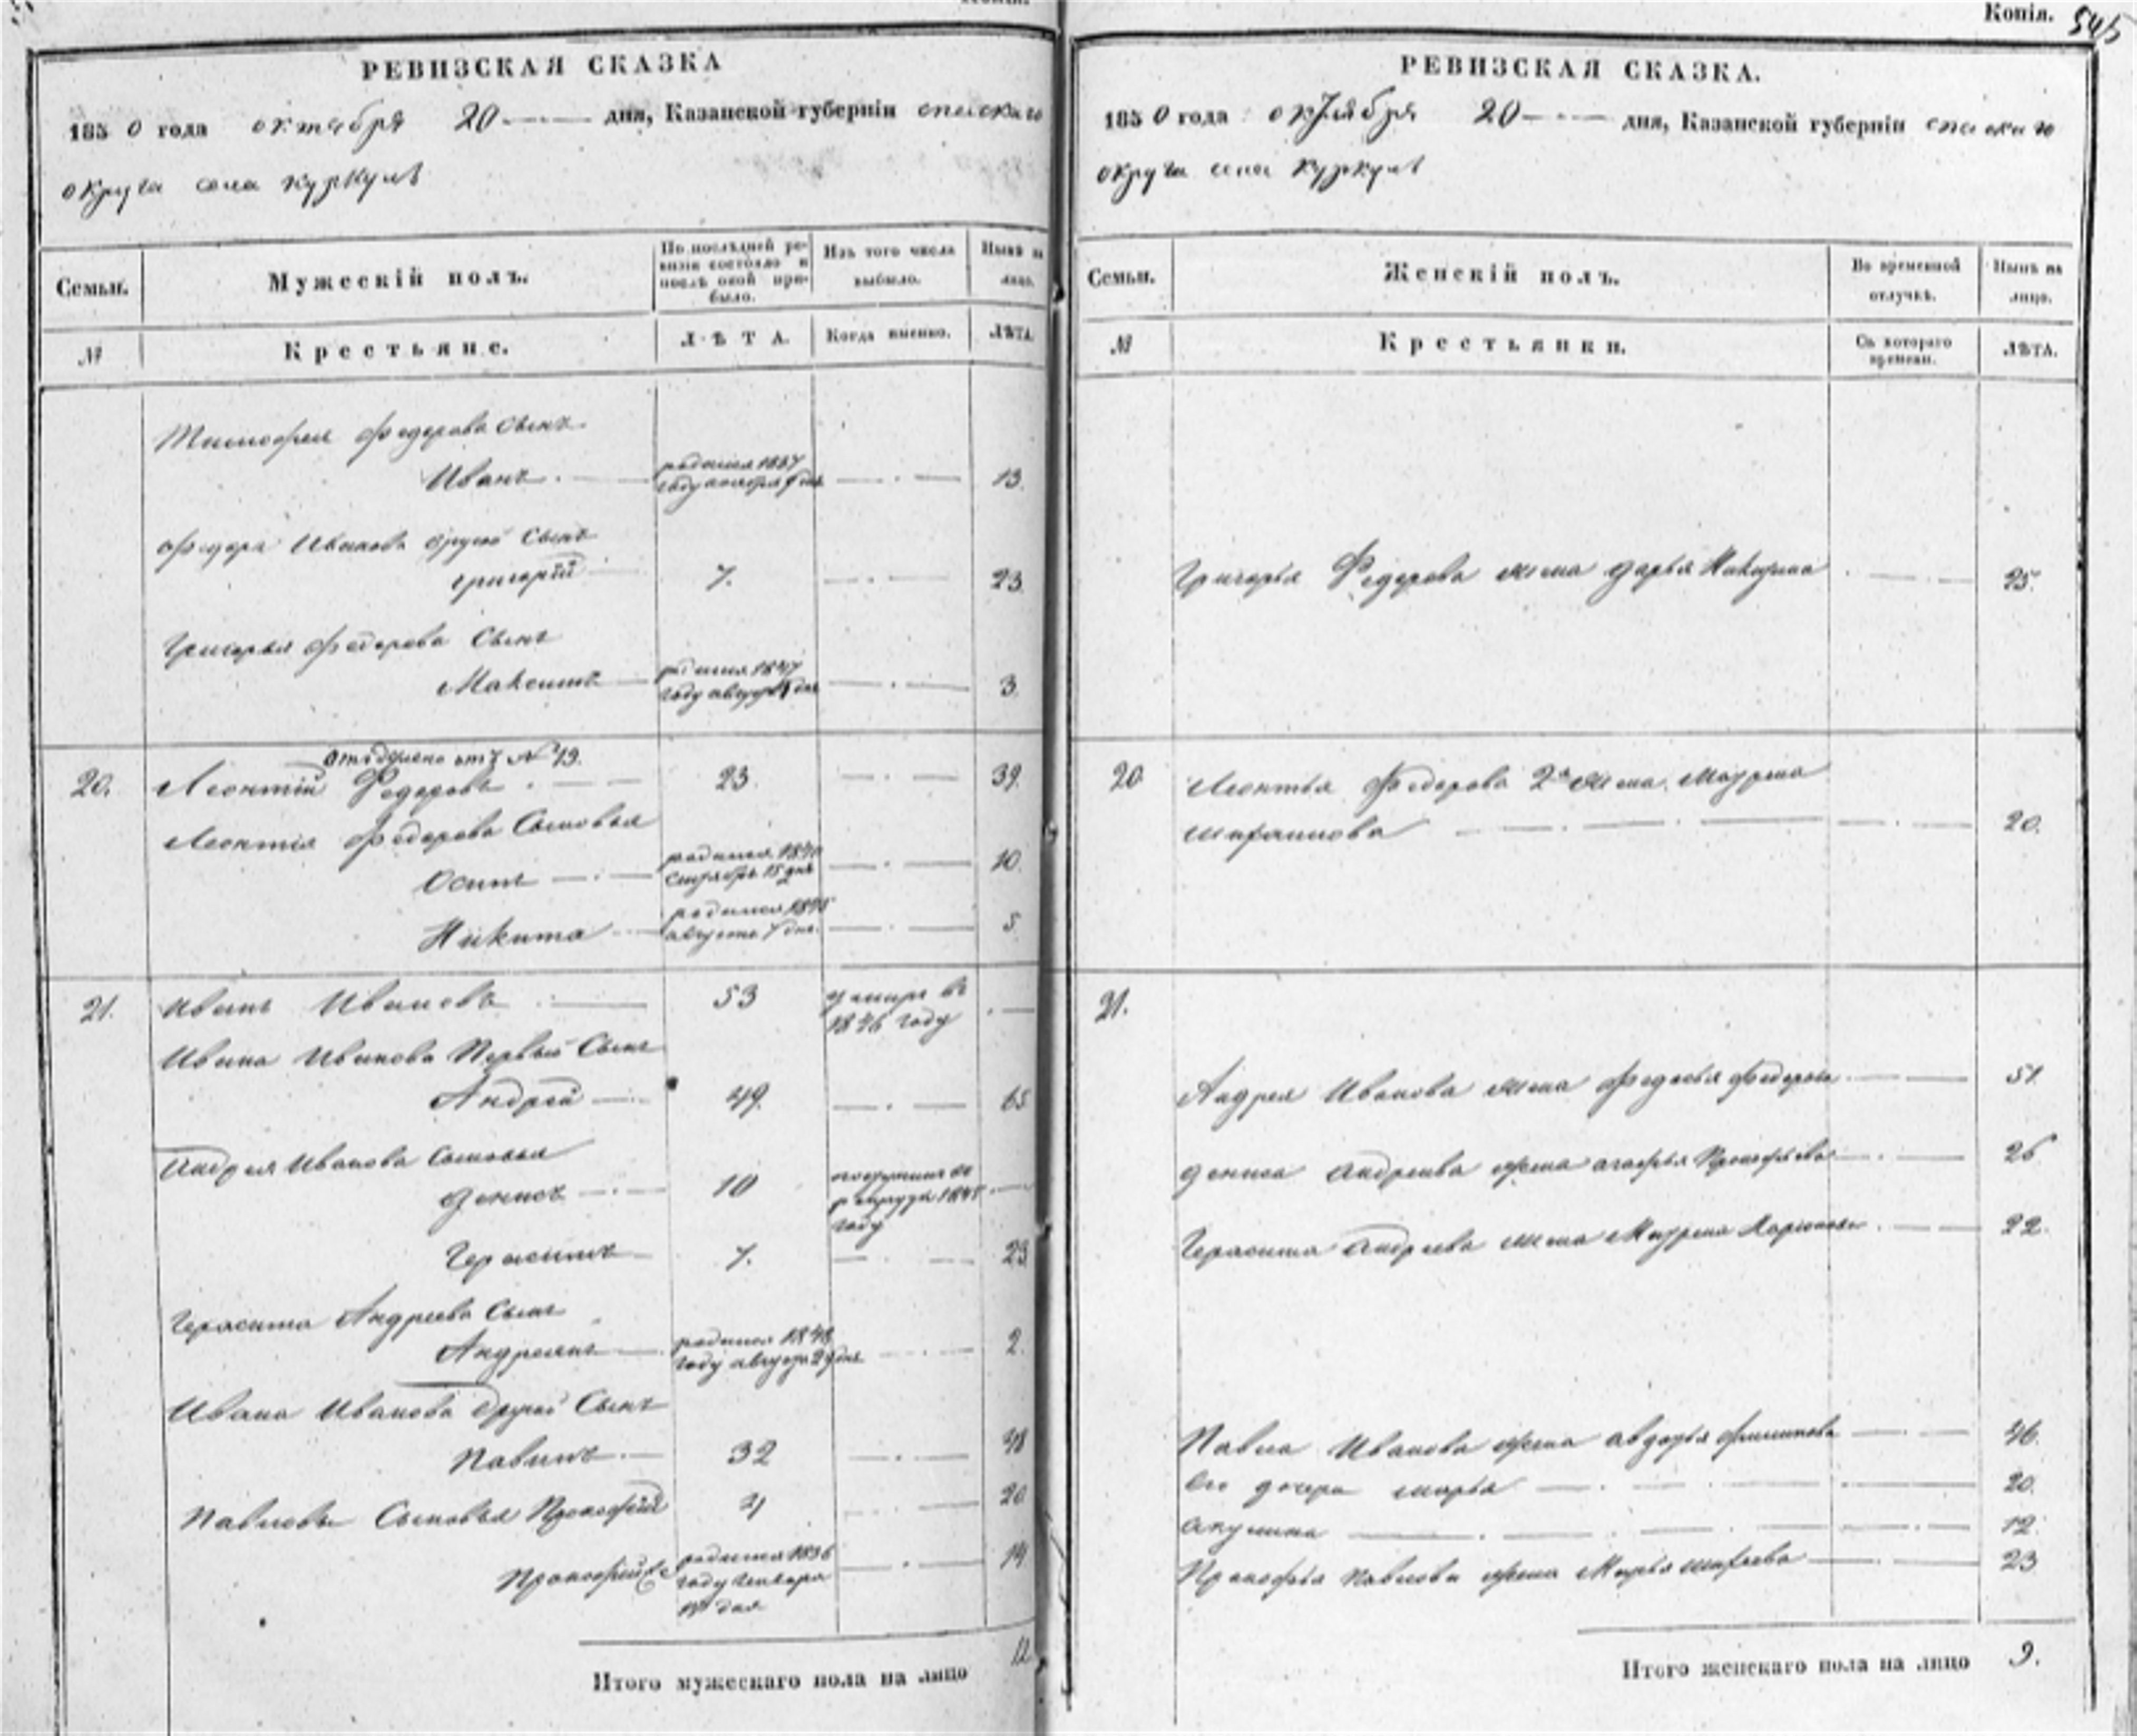 Копія. 545
РЕВИЗСКАЯ СКАЗКА
1850 года октября 20 дня, Казанской губерніи спаскаго
округа села куркуль
Семьи. Мужескій полъ. По послѣдней ревизіи состояло и послѣ оной прибыло. Изъ того числа выбыло. Нынѣ на лицо.
№ Крестьяне. ЛѢТА. Когда именно. ЛѢТА.
Тимофея федорова сынъ
Иванъ родился 1837 году 13.
федора Иванова другой Сынъ
григорій 7. 23.
Григорья федорова Сынъ
Максимъ родился 1847 году августа дня 3.
отделено отъ № 19.
20. Леонтій Федоровъ 23. 39.
Леонтія федорова Сыновья
Осипъ родился 1840 сентября 15 дня 10.
Никита родился 1845 августа 7 дня. 5.
21. Иванъ Ивановъ 53 умире въ 1846 году
Ивана Иванова Первый Сынъ
Андрей 49. 65
Андрея Иванова Сыновья
денисъ 10 поступилъ въ рекруты году
Герасимъ 7. 23
Герасима Андреева Сынъ
Андреянъ родился 1848 году августа 29 дня 2.
Ивана Иванова другой Сынъ
Павелъ 32 48
Павловы Сыновья Прокофій 4 20
Прокофій родился 1836 году генваря дня 14
Итого мужескаго пола на лицо 12
РЕВИЗСКАЯ СКАЗКА.
1850 года октября 20 дня, Казанской губерніи спаскаго
округа села куркуль
Семьи. Женскій полъ. Во временной отлучкѣ. Нынѣ на лицо.
№ Крестьянки. Съ котораго времени. ЛѢТА.
Григорья Федорова жена дарья 25.
20 Леонтья Федорова 2я жена Маурша
20.
21.
Андрея Иванова жена федосья федорова 51.
дениса андреива жена агафья Прокофьева 26
Герасима андреева жена 22.
Павла Иванова жена авдотья филипова 46.
его дочери марья 20.
акулина 12.
Прокофья павлова жена Марья 23
Итого женскаго пола на лицо 9.